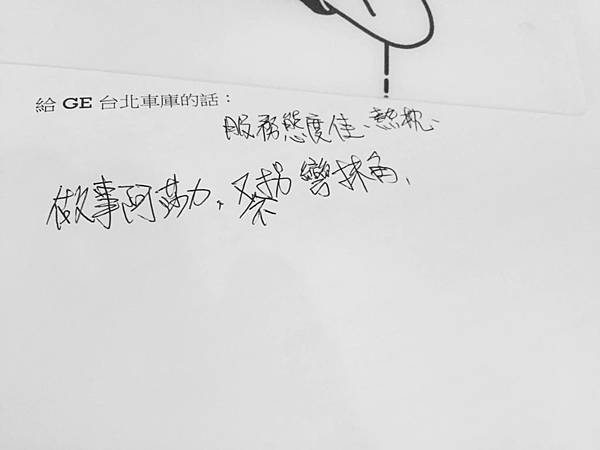 給 GE 台北車庫的話：
服務態度佳、熱枕、
做事阿莎力、又不拐彎抹角、